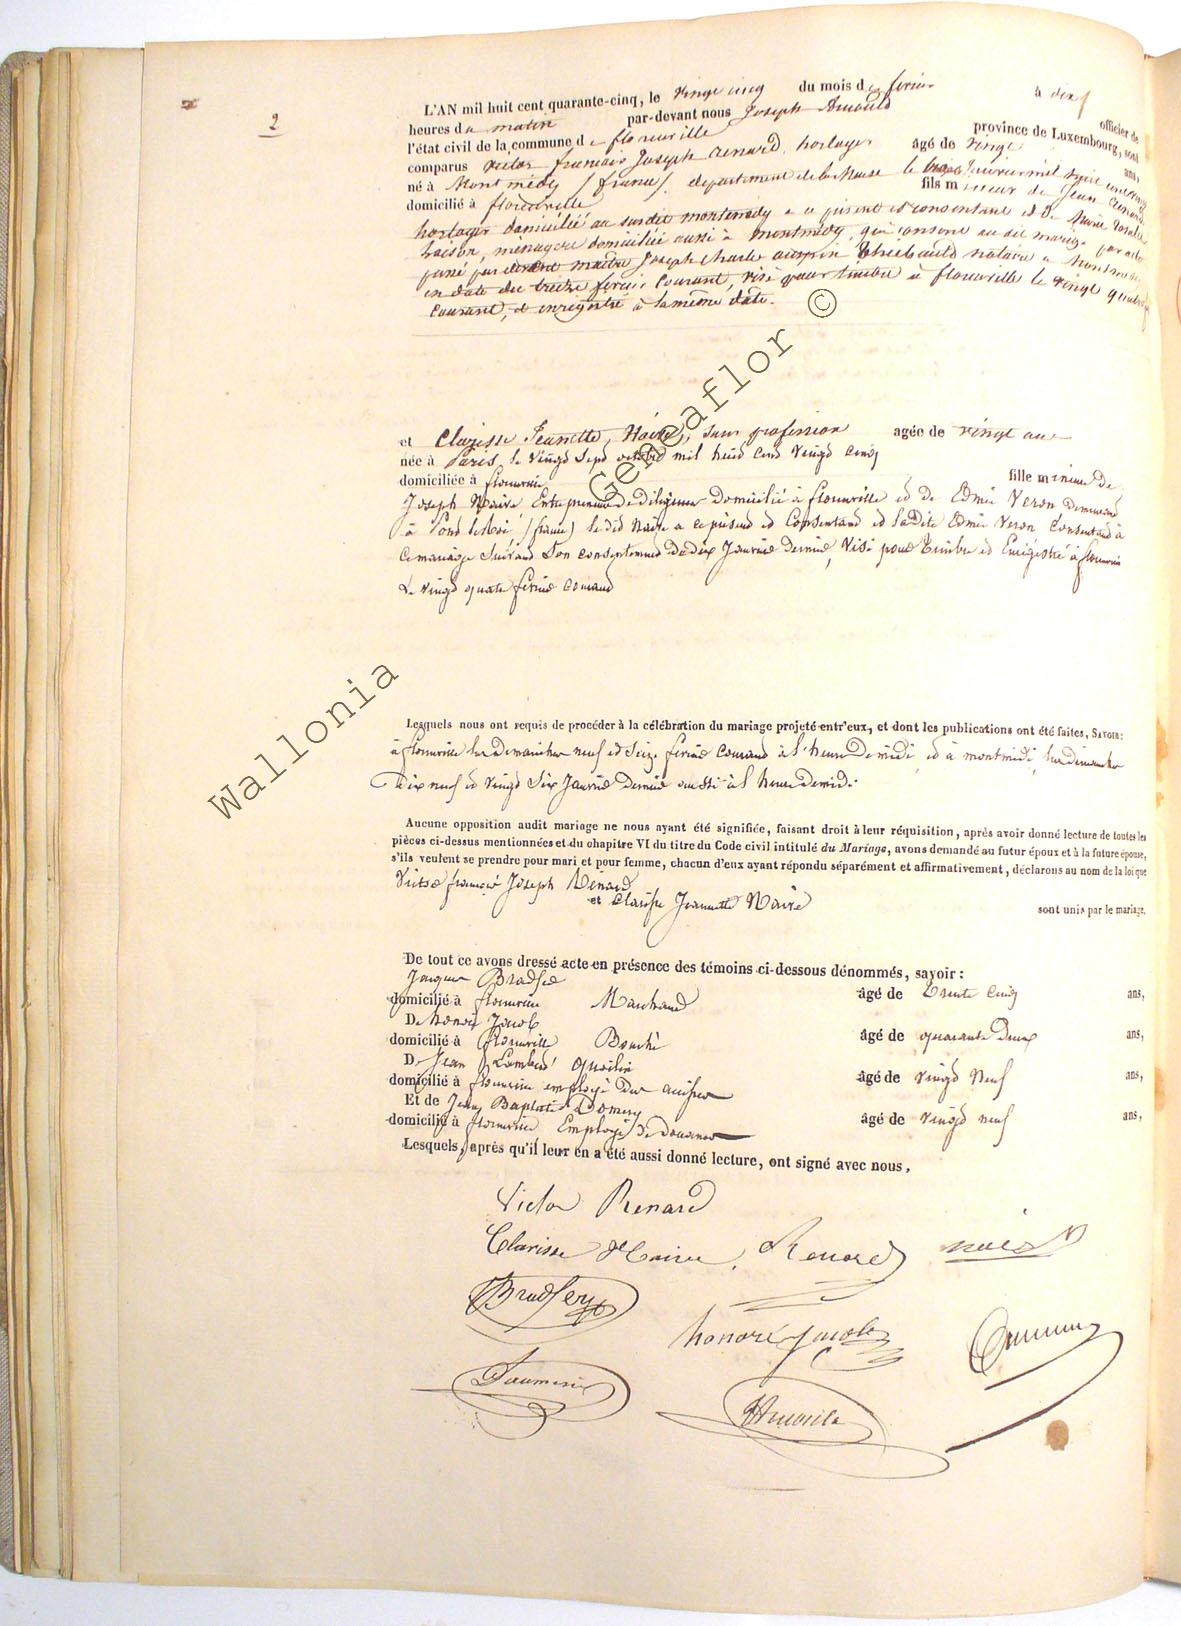 2
L'AN mil huit cent quarante-cinq, le vingt cinq du mois de février à dix
heures du matin par-devant nous Joseph Arnould officier de
l'état civil de la commune de florenville province de Luxembourg, sont
comparus Victor françois Joseph Renard, horloger agé de vingt ans,
né à Montmédy (france), département de la Meuse le janvier mil huit cent
domicilié à florenville fils mineur de Jean Renard
horloger domicilié au susdit montmédy a ce présent et consentant et de Marie
ménagère domiciliée aussi à montmédy, qui consent au dit mariage par acte
passé par devant maître Joseph Charle Thiébauld notaire a Montmédy
en date du treize février courant, visé pour timbre a florenville le vingt quatre
courant, et enregistré à la même date.
et Clarisse Jeannette Naire, sans profession agée de vingt ans
née à Paris le vingt sept octobre mil huit cent vingt cinq
domiciliée à florenville fille mineure de
Joseph Naire Entrepreneur de diligence domicilié à florenville et de Edmée Veron demeurant
à (france) le dit Naire a ce présent et Consentant et la Dite Edmée Veron Consentant à
Ce mariage Suivant Son consentement du dix Janvier dernier, Visé pour Timbre et Enregistré à florenville
Le vingt quatre février courant
Lesquels nous ont requis de procéder à la célébration du mariage projeté entr'eux, et dont les publications ont été faites, SAVOIR:
à florenville les Dimanches neuf et Seize février Courant à l'heure De midi et à montmédi, les dimanches
Dix neuf et Vingt Six Janvier dernier aussi à l'heure de midi.
Aucune opposition audit mariage ne nous ayant été signifiée, faisant droit à leur réquisition, après avoir donné lecture de toutes les
pièces ci-dessus mentionnées et du chapitre VI du titre du Code civil intitulé du Mariage, avons demandé au futur époux et à la future épouse,
s'ils veulent se prendre pour mari et pour femme, chacun d'eux ayant répondu séparément et affirmativement, déclarons au nom de la loi que
Victor françois Joseph Renard
et Clarisse Jeannette Naire sont unis par le mariage.
De tout ce avons dressé acte en présence des témoins ci-dessous dénommés, savoir :
Jacques
domicilié à florenville Marchand âgé de trente cinq ans,
De honoré Jacob
domicilié à florenville Bouché âgé de quarante Deux ans,
De Jean Lambert
domicilié à florenville employé des accises âgé de vingt Neuf ans,
Et de Jean Baptiste
domicilié à florenville Employé de douanes âgé de vingt neuf ans,
Lesquels, après qu'il leur en a été aussi donné lecture, ont signé avec nous.
Victor Renard
Clarisse Naire Renard
honoré Jacob
Wallonia Geneaflor ©